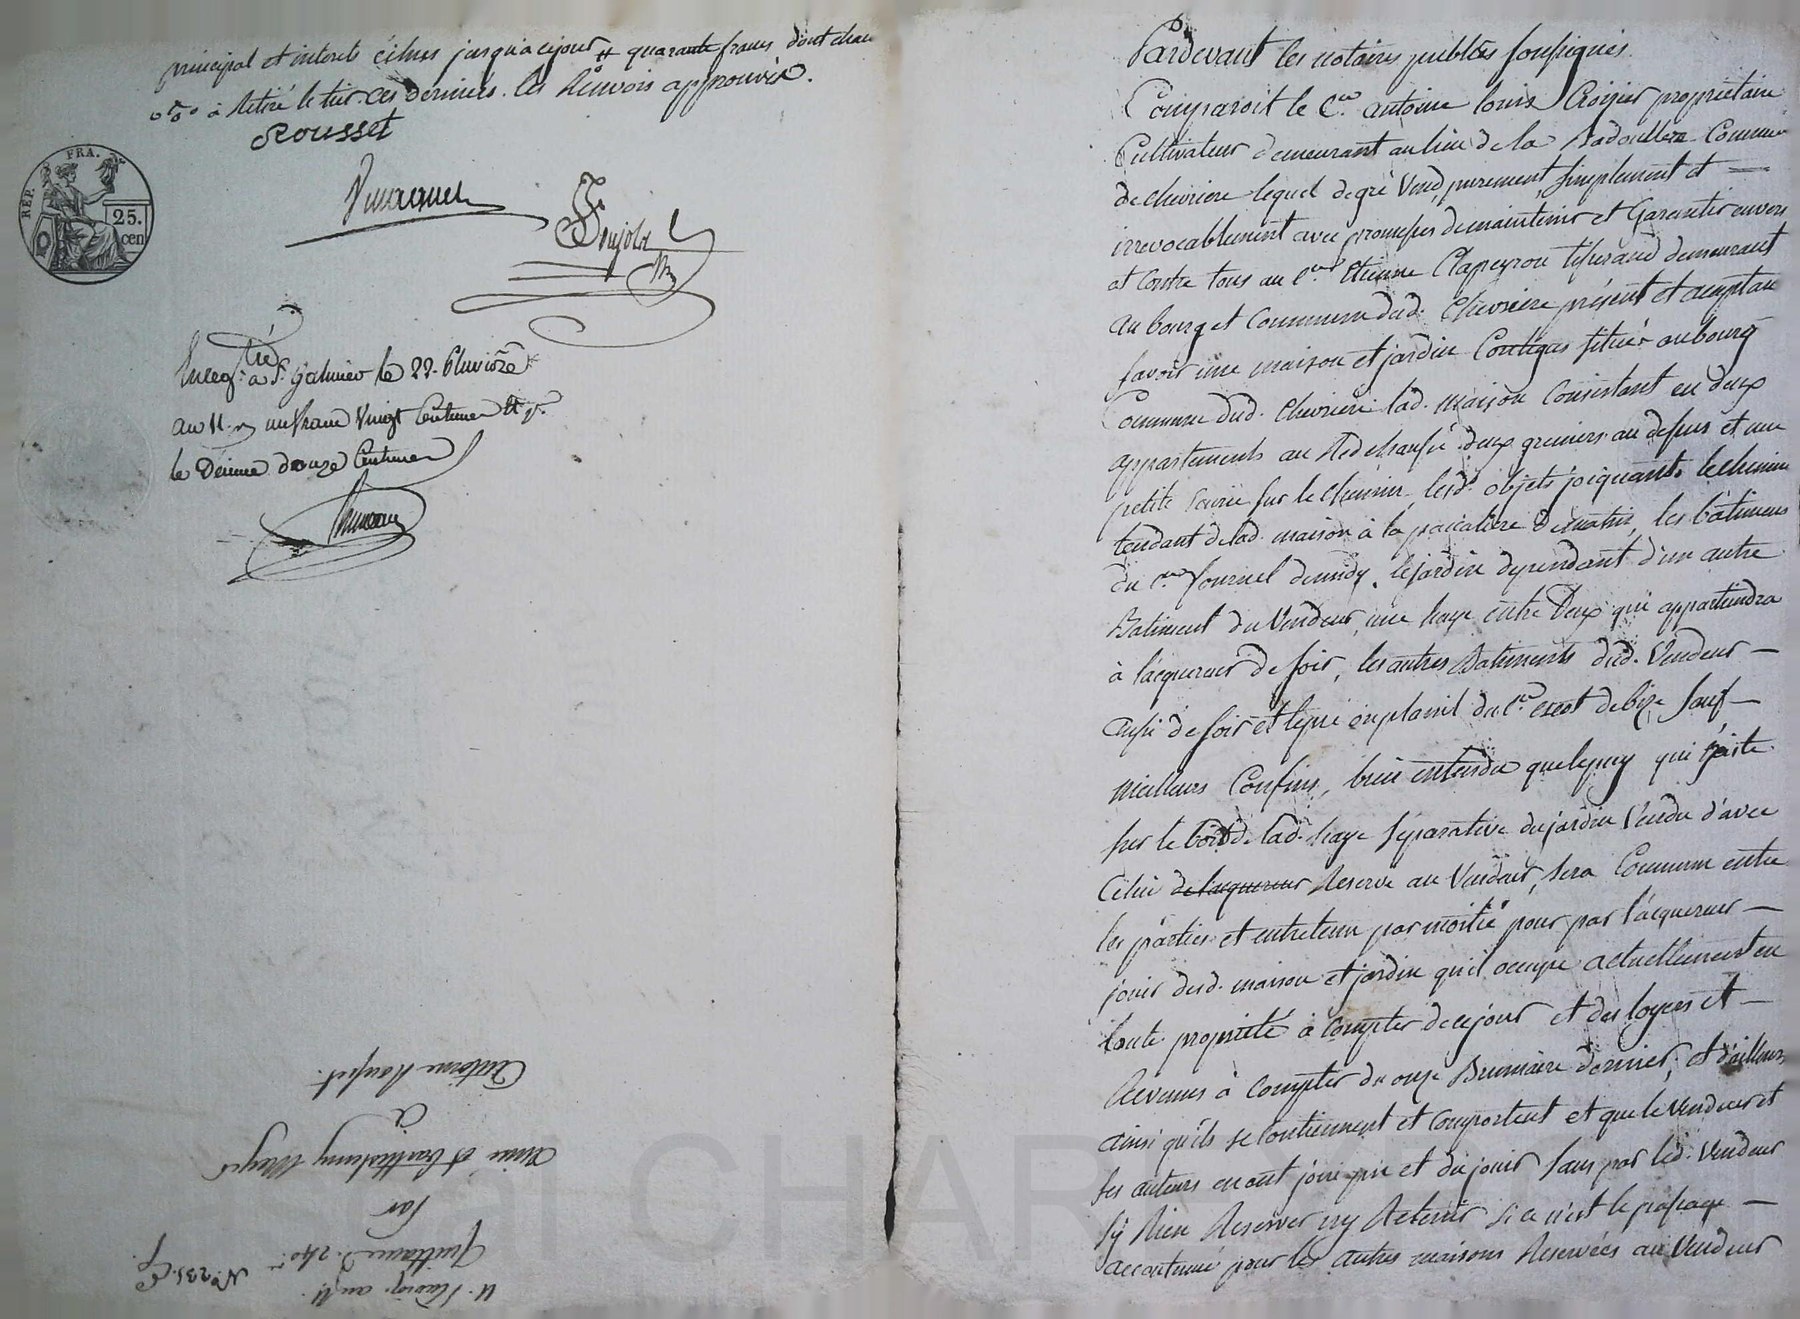 principal et interets échus jusqu'a ce jour # quarante francs dont chacun
a retiré le tier. ces derniers. les Renvois approuvés.
Rousset
REP. FRA.
25.
cen
Enregtré à St. Galmier le 22. Pluviôse
an 11. un franc vingt Centimes
le Décime douze Centimes
Pardevant les notaires publics soussignés
Comparoit le Cen antoine louis Croizier propriétaire
Cultivateur demeurant au lieu de la Badouillere Commune
de chevriere lequel de gré Vend purement, simplement et —
irrevocablement avec promesses de maintenir et Garentir envers
et Contre tous au Cen Etienne Clapeyron tisserand demeurant
au bourg et Commune dud. Chevriere présent et acceptant
savoir une maison et jardin Contigus situés au bourg
Commune dud. Chevriere lad. maison Consistant en deux
appartements au Rez de chaussé deux greniers au dessus et une
petite Ecurie sur le chemin, lesd. objets joignants le chemin
tendant de lad. maison à la de matin, les bâtimens
du Cen fournel de midy, le jardin dependant d'un autre
Batiment du Vendeur, une haye entre Deux qui appartiendra
à l'acquereur de soir, les autres Batiments dud. Vendeur —
aussi de soir et du Cen de bize sauf —
meilleurs Confins, bien entendu que le puy qui existe
sur le bord de lad. haye séparative du jardin Vendu d'avec
Celui de lacquereur Reservé au Vendeur, sera Commun entre
les parties et entretenu par moitié pour par l'acquereur —
jouir desd. maison et jardin qu'il occupe actuellement en
toute propriété à compter de ce jour et des loyers et —
Revenus à compter du onze Brumaire dernier, et d'ailleurs
ainsi qu'ils se contiennent et comportent et que le Vendeur et
ses auteurs en ont joui pu et du jouir sans par led. Vendeur
s'y Rien Reserver ny Retenir si ce n'est le passage —
accoutumé pour les autres maisons Reservées au Vendeur
Nº. 235.
11. Pluviose an 11.
Quittance d. 240.
Par
et Barthelemy
à
Antoine Rousset.